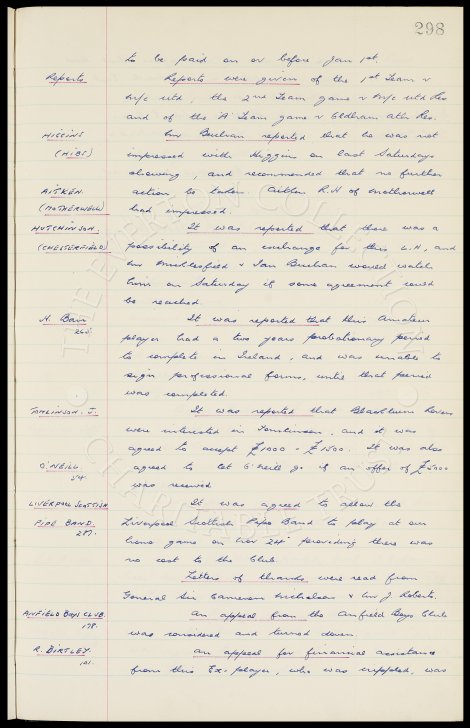 298
to be paid on or before Jan 1st.
Reports Reports were given of the 1st Team v
M/c Utd, the 2nd Team game v M/c Utd Res
and of the 'A' Team game v Oldham Ath Res.
HIGGINS Mr Buchan reported that he was not
(HIBS) impressed with Higgins on last Saturdays
showing, and recommended that no further
AITKEN action be taken. Aitken R.H of Motherwell
(MOTHERWELL) had impressed.
HUTCHINSON. It was reported that there was a
(CHESTERFIELD) possibility of an exchange for this L.H, and
Mr Micklesfield & Ian Buchan would watch
him on Saturday if some agreement could
be reached.
H. Barr It was reported that this Amateur
265. player had a two years probationary period
to complete in Ireland, and was unable to
sign professional forms, until that period
was completed.
TOMLINSON. J. It was reported that Blackburn Rovers
were interested in Tomlinson, and it was
agreed to accept £1000 - £1500. It was also
O'NEILL. agreed to let O'Neill go if an offer of £5000
54. was received
LIVERPOOL SCOTTISH It was agreed to allow the
PIPE BAND. Liverpool Scottish Pipe Band to play at our
287. home game on Nov 24th providing there was
no cost to the Club.
Letters of thanks were read from
General Sir Cameron Nicholson & Mr J. Roberts.
ANFIELD BOYS CLUB. An appeal from the Anfield Boys Club
178. was considered and turned down.
R. BIRTLEY. An appeal for financial assistance
101. from this Ex-player, who was crippled, was
THE EVERTON COLLECTION
CHARITABLE TRUST